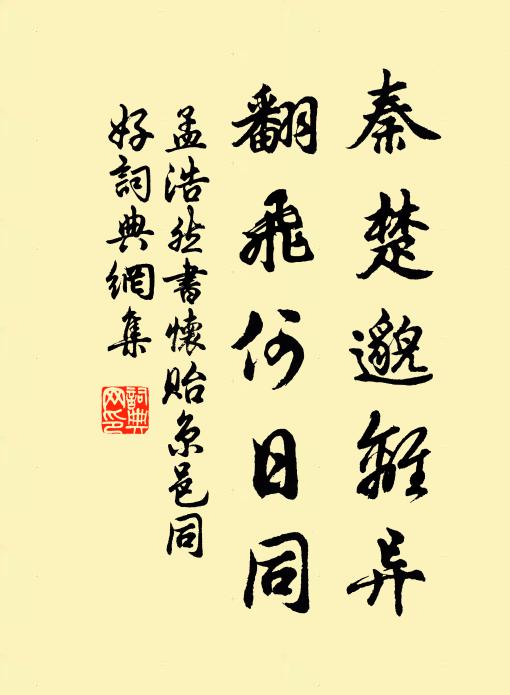 秦楚邈離异
翻飛何日同
孟浩然書懷貽京邑同
好詞典網集
詞典网印